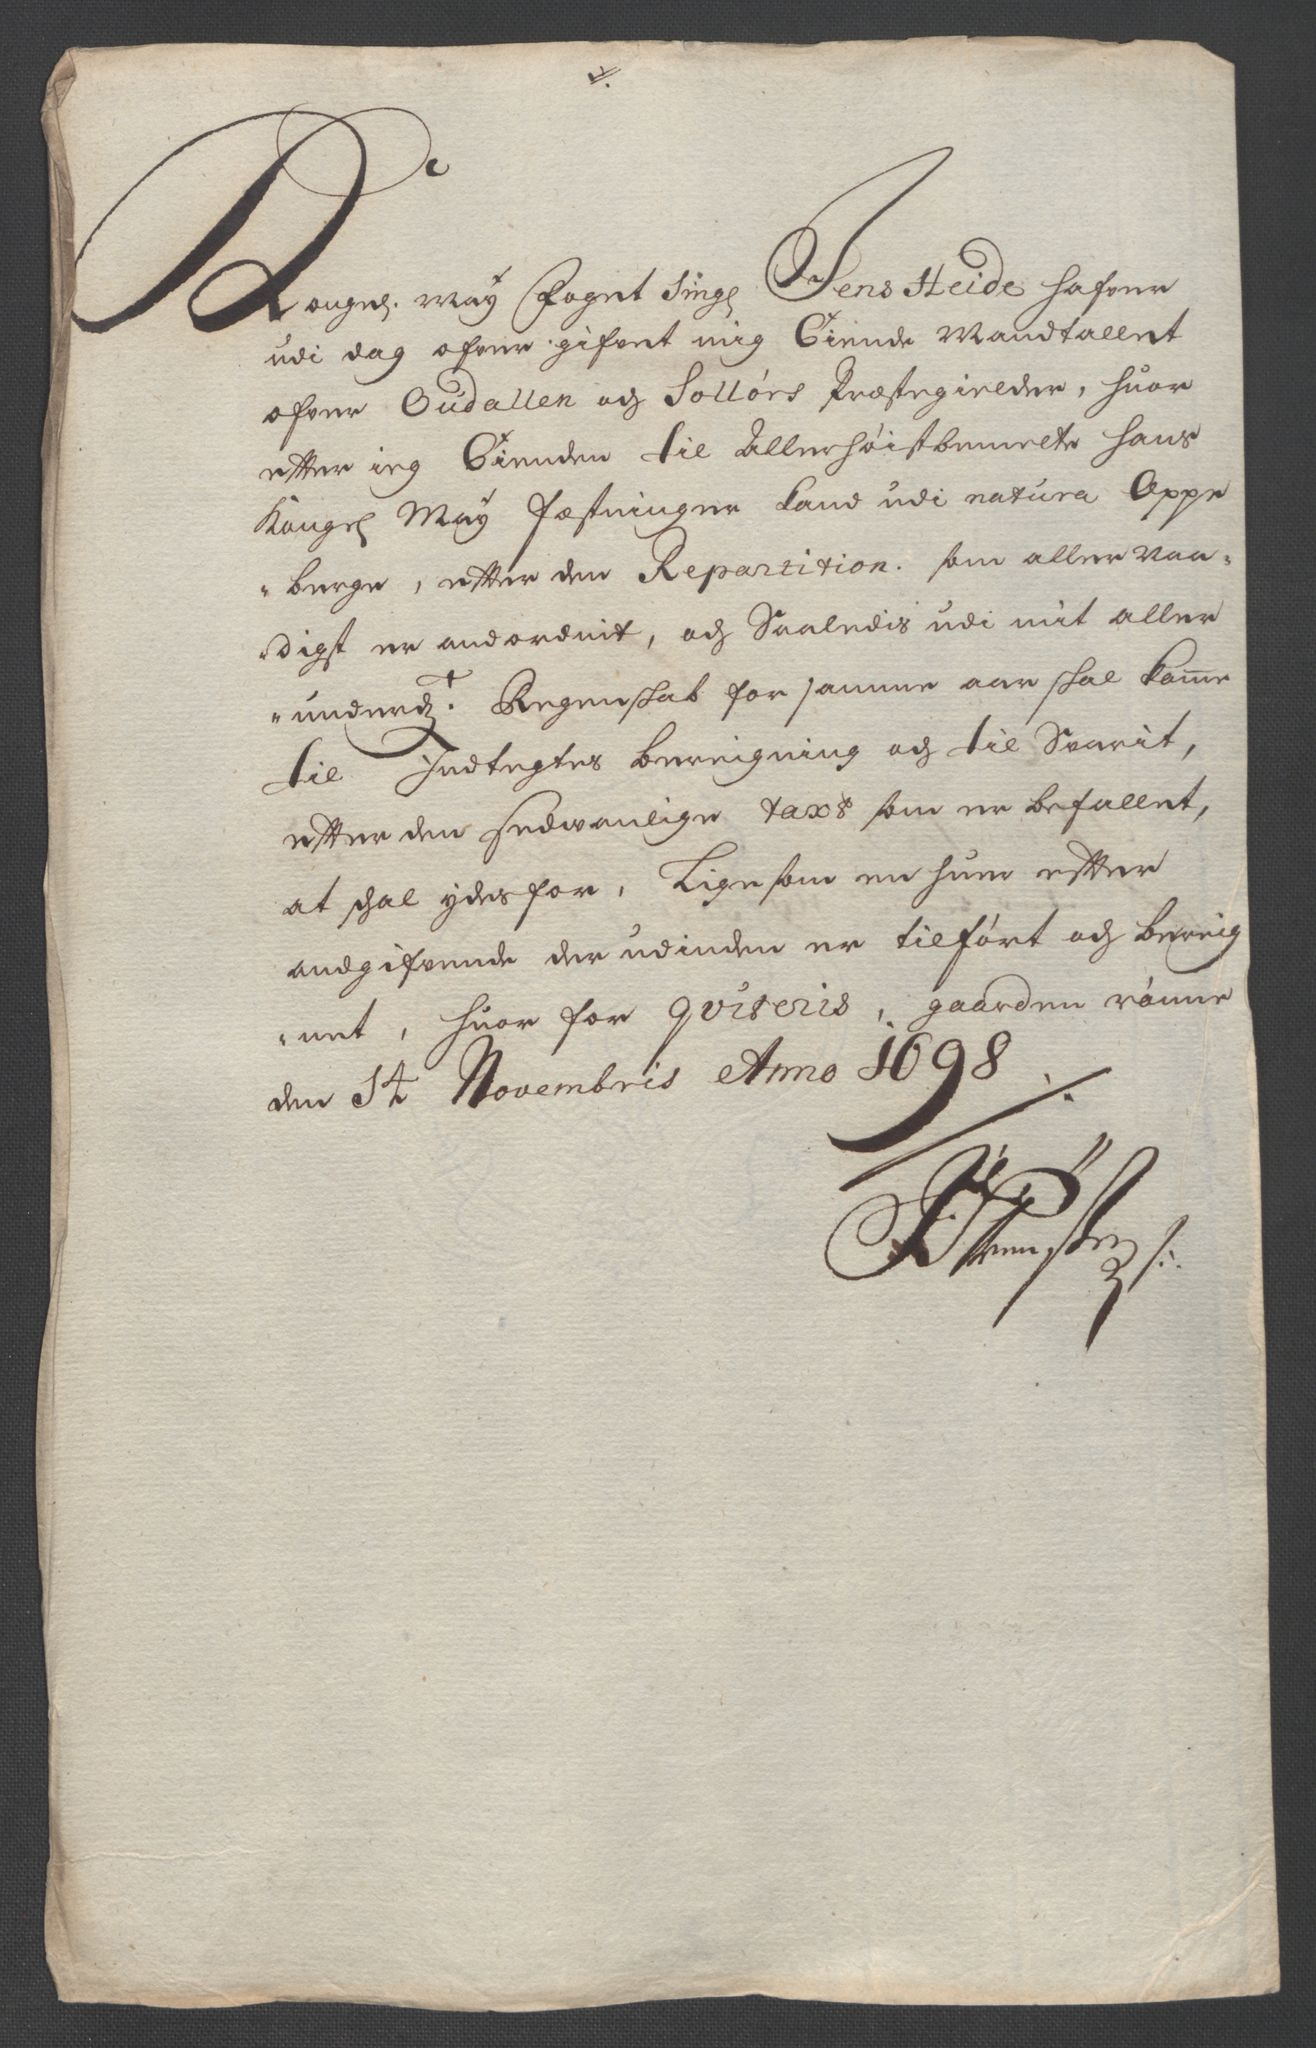 Kongel. May Foget Singl Jens Heide hafver
udi dag ofver gifvet mig Tiende Mandtallet
ofver Oudallen och Sollørs Præstegielder, huor
efter ieg Tienden til Allerhøistbemelte Hans
Kongel May Festninger kand udi natura Oppe
berge, efter den Repartition. som aller naa-
digst er andordnit, och Saaledis udi mit aller
underd. Regenskab for samme aar skal komme
til Indtegtes bereigning och til Svarit,
efter den sedvanlige taxt som er befallet,
at skal ydes for, Ligesom en huer efter
andgifvende der udinden er tilført och bereig
net, huor for qviteris, gaarden rønne
den 14 Novembris Anno 1698